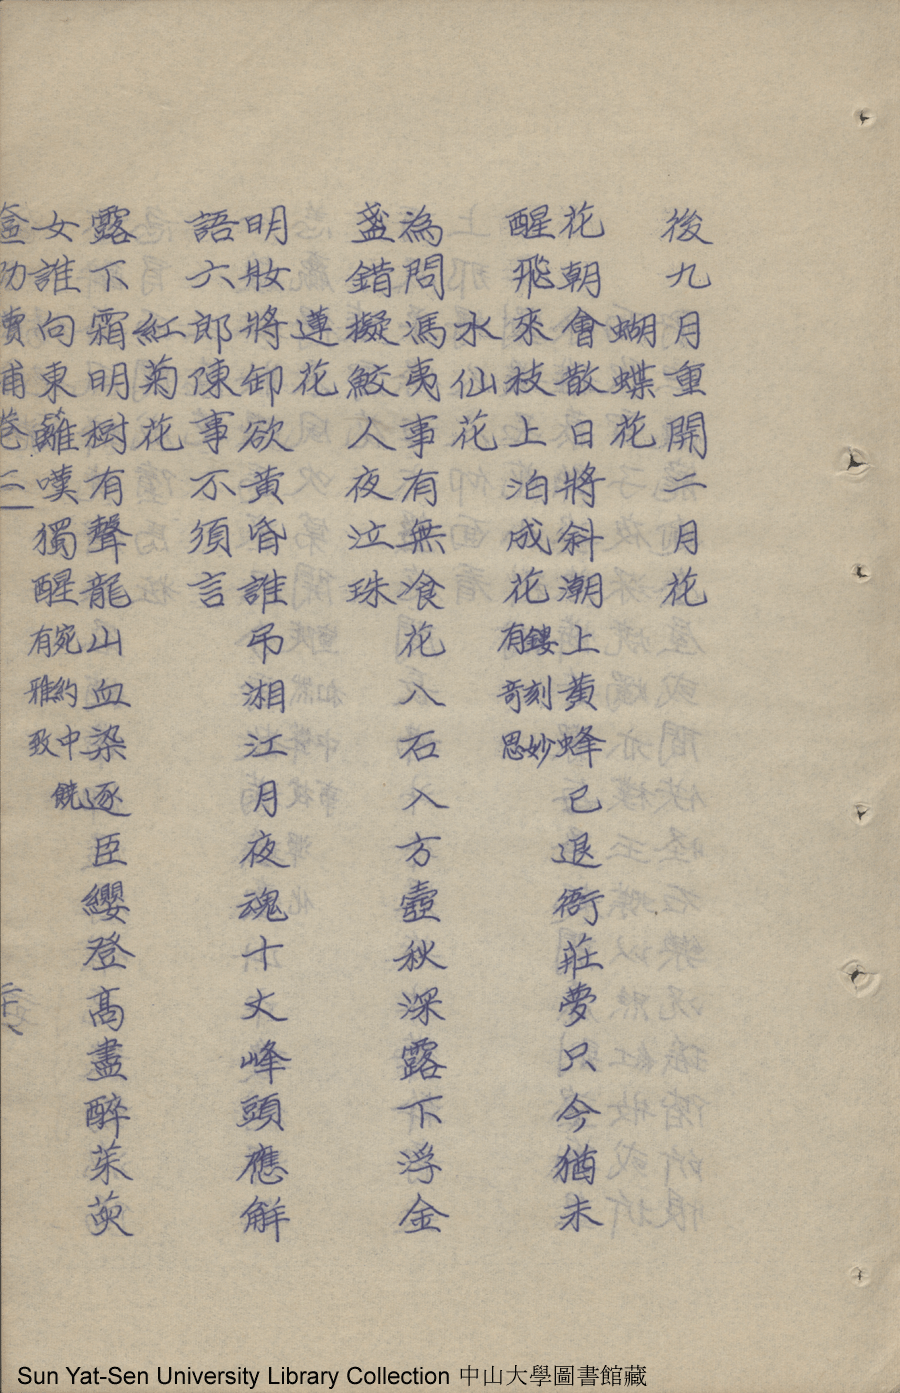 後九月重開二月花
蝴蝶花
花朝會散日將斜潮上黃蜂已退衙莊夢只今猶未
醒飛來枝上泊成花鏤刻妙有奇思
水仙花
為問馮夷事有無飡花入石入方壺秋深露下浮金
盞錯擬鮫人夜泣珠
蓮花
明妝將卸欲黃昏誰弔湘江月夜魂十丈峰頭應解
語六郎陳事不須言
紅菊花
露下霜明樹有聲龍山血染逐臣纓登高盡醉茱萸
女誰向東籬嘆獨醒宛約中饒有雅致
卷二
Sun Yat-Sen University Library Collection 中山大學圖書館藏